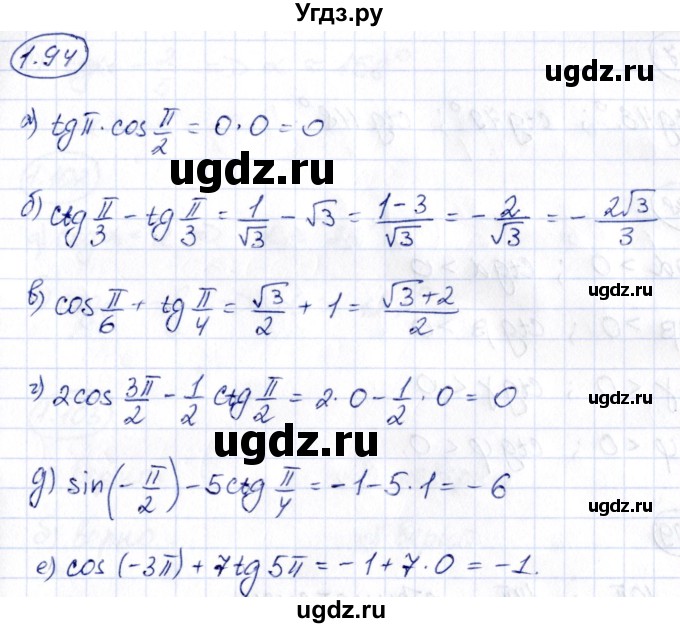 Угдз.ру
1.94
ugdz.ru
а) tgπ · cos π/2 = 0 · 0 = 0
ugdz.ru
ugdz.ru
б) ctg π/3 − tg π/3 = 1/√3 − √3 = (1−3)/√3 = − 2/√3 = − 2√3/3
ugdz.ru
в) cos π/6 + tg π/4 = √3/2 + 1 = (√3+2)/2
г) 2cos 3π/2 − 1/2 ctg π/2 = 2·0 − 1/2 · 0 = 0
ugdz.ru
ugdz.ru
д) sin(−π/2) − 5ctg π/4 = −1−5·1 = −6
ugdz.ru
е) cos(−3π) + 7tg5π = −1+7·0 = −1.
ugdz.ru